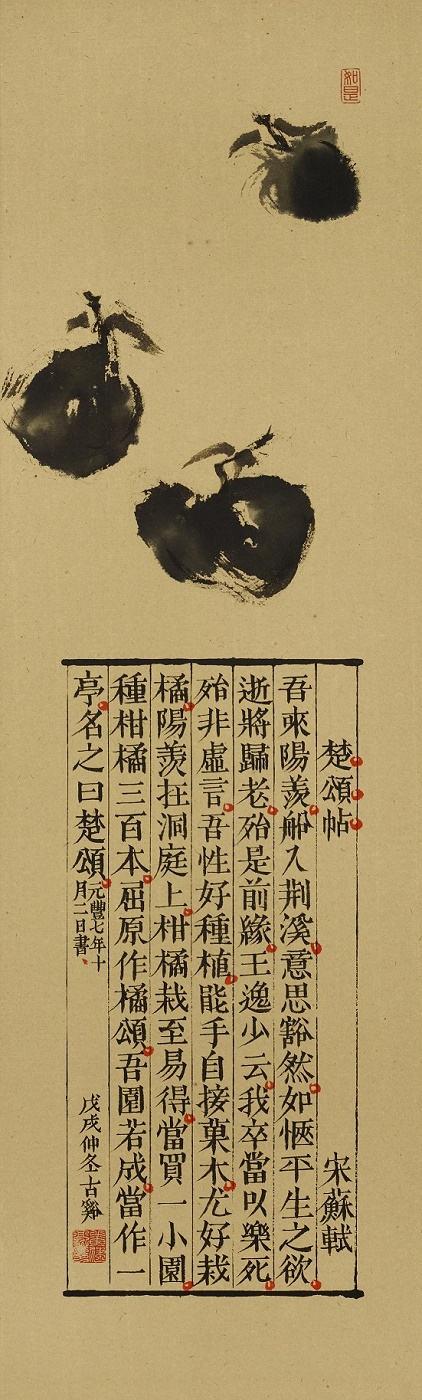 如是
楚頌帖 宋蘇軾
吾來陽羨船入荆溪意思豁然如愜平生之欲
逝將歸老殆是前緣王逸少云我卒當以樂死
殆非虛言吾性好種植能手自接菓木尤好栽
橘陽羨在洞庭上柑橘栽至易得當買一小園
種柑橘三百本屈原作橘頌吾園若成當作一
亭名之曰楚頌元豐七年十
月二日書
戊戌仲冬古谿